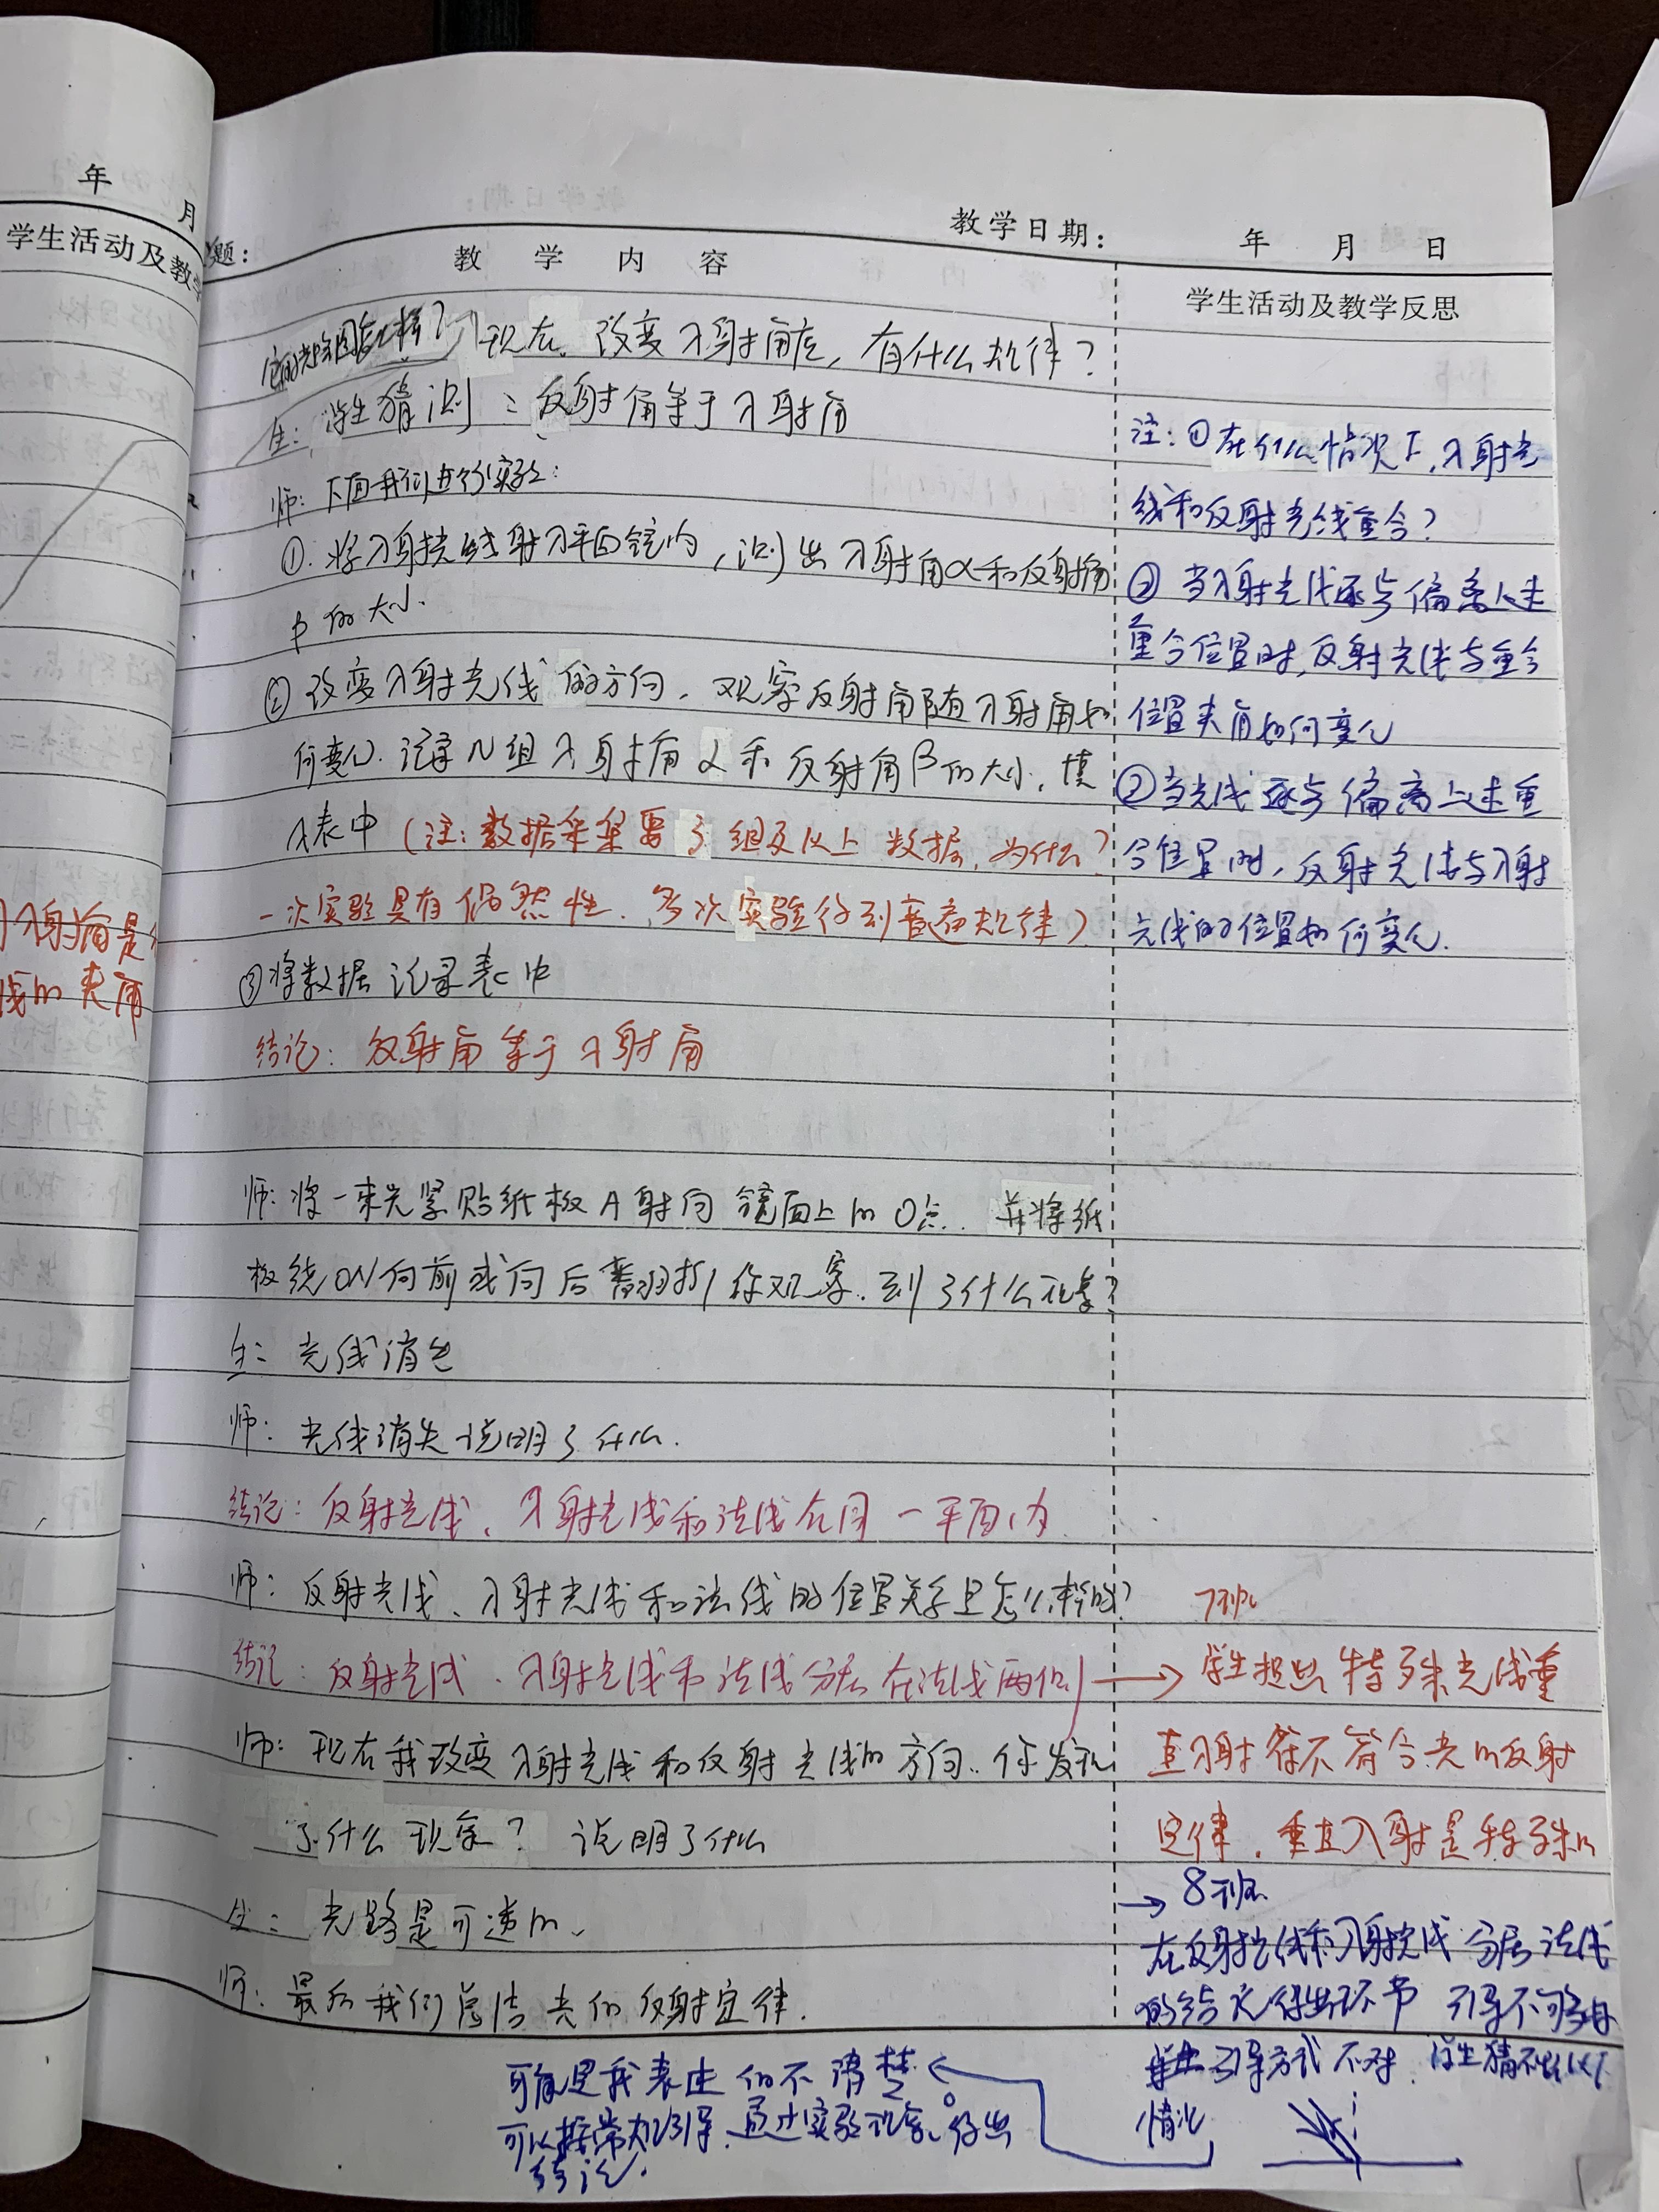 年
月
学生活动及教学
入射角是
线的夹角
题:
教学日期: 年 月 日
教 学 内 容
学生活动及教学反思
现在,改变入射角度,有什么规律?
生:学生猜测:反射角等于入射角
师:下面我们进行实验:
①.将入射光线射入平面镜内,测出入射角α和反射角
β的大小.
②改变入射光线的方向,观察反射角随入射角如
何变化.记录N组入射角α和反射角β的大小,填
入表中(注:数据采集要3组及以上数据,为什么?
一次实验具有偶然性,多次实验得到普遍规律)
③将数据记录表中
结论:反射角等于入射角
师:将一束光紧贴纸板A射向镜面上的O点.并将纸
板绕ON向前或向后翻折,你观察到了什么现象?
生:光线消失
师:光线消失说明了什么.
结论:反射光线、入射光线和法线在同一平面内
师:反射光线、入射光线和法线的位置关系是怎么样的?
结论:反射光线、入射光线和法线分居在法线两侧
师:现在我改变入射光线和反射光线的方向.你发现
了什么现象?说明了什么
生:光路是可逆的、
师:最后我们总结光的反射定律.
注:①在什么情况下,入射光
线和反射光线重合?
②当入射光线逐步偏离上述
重合位置时,反射光线与重合
位置夹角如何变化
②当光线逐步偏离上述重
合位置时,反射光线与入射
光线的位置如何变化.
7班
学生提出特殊光线垂
直入射符不符合光的反射
定律,垂直入射是特殊的
→ 8班
在反射光线和入射光线分居法线
的结论得出环节 引导不够
引导方式不对.学生猜不出
情况
可能是我表述的不清楚。
可以接常力引导,通过实验现象、得出
结论.